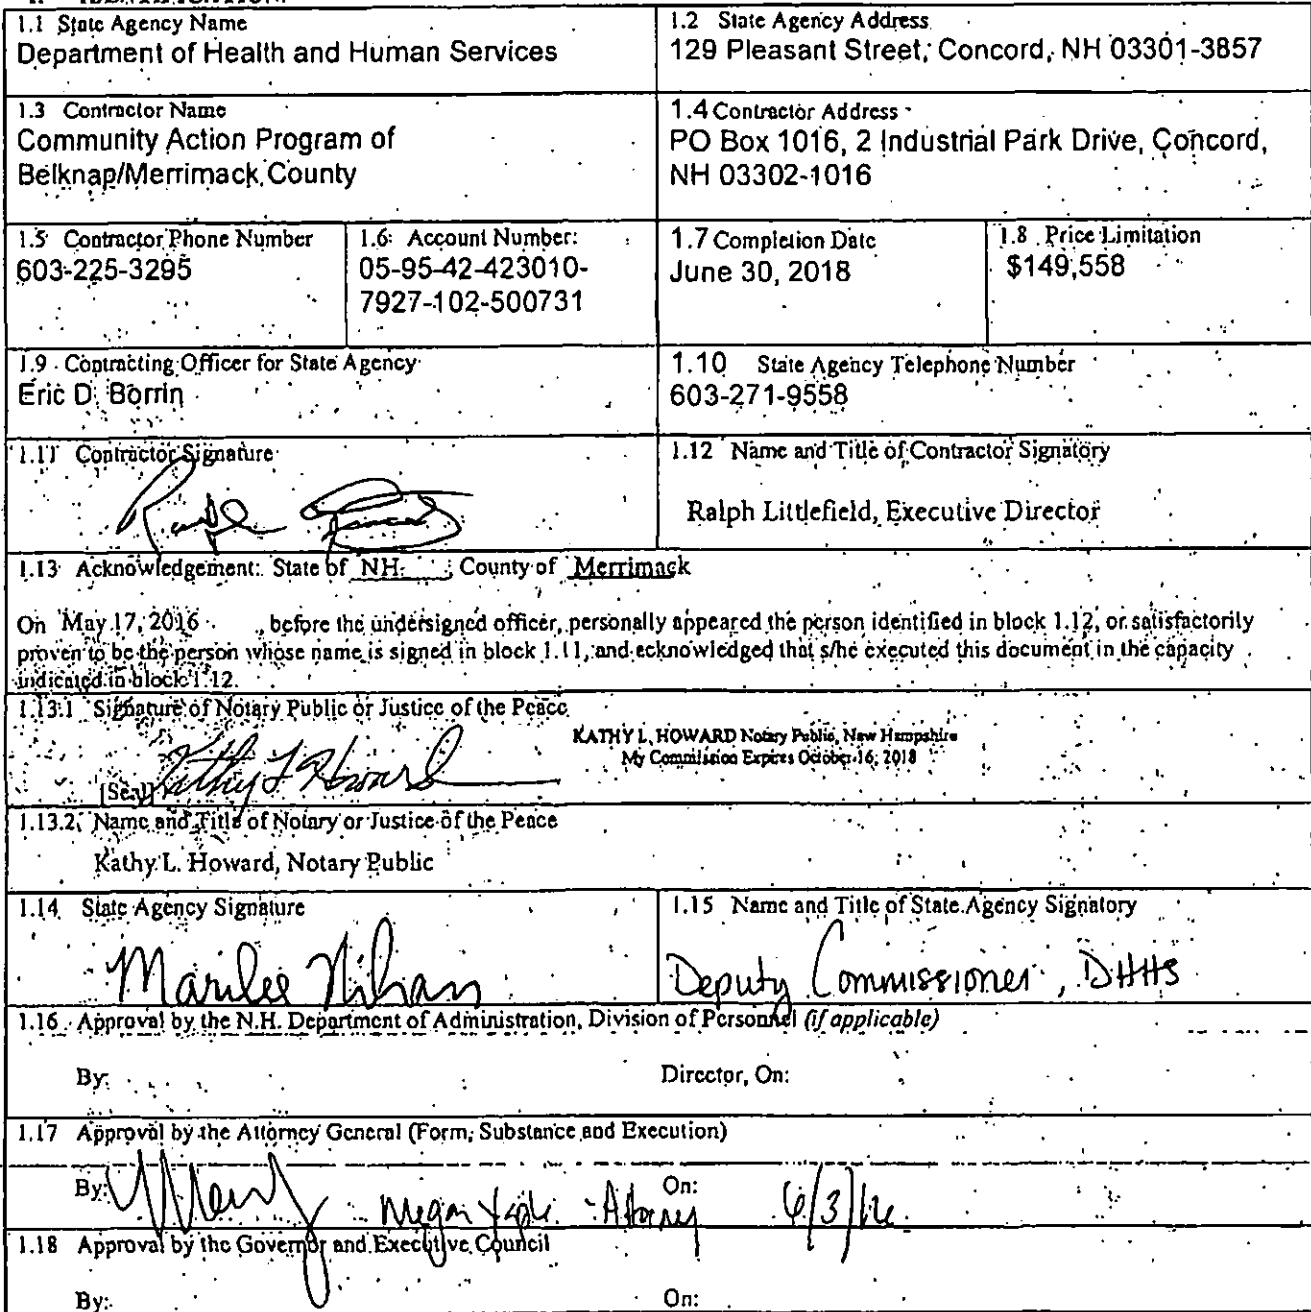 1.1 State Agency Name
Department of Health and Human Services
1.2 State Agency Address
129 Pleasant Street, Concord, NH 03301-3857
1.3 Contractor Name
Community Action Program of
Belknap/Merrimack County
1.4 Contractor Address
PO Box 1016, 2 Industrial Park Drive, Concord,
NH 03302-1016
1.5 Contractor Phone Number
603-225-3295
1.6 Account Number:
05-95-42-423010-
7927-102-500731
1.7 Completion Date
June 30, 2018
1.8 Price Limitation
$149,558
1.9 Contracting Officer for State Agency
Eric D. Borrin
1.10 State Agency Telephone Number
603-271-9558
1.11 Contractor Signature
1.12 Name and Title of Contractor Signatory
Ralph Littlefield, Executive Director
1.13 Acknowledgement: State of NH , County of Merrimack
On May 17, 2016 , before the undersigned officer, personally appeared the person identified in block 1.12, or satisfactorily
proven to be the person whose name is signed in block 1.11, and acknowledged that s/he executed this document in the capacity
indicated in block 1.12.
1.13.1 Signature of Notary Public or Justice of the Peace
KATHY L. HOWARD Notary Public, New Hampshire
My Commission Expires October 16, 2018
[Seal] Kathy L Howard
1.13.2 Name and Title of Notary or Justice of the Peace
Kathy L. Howard, Notary Public
1.14 State Agency Signature
Marilee Nihan
1.15 Name and Title of State Agency Signatory
Deputy Commissioner, DHHS
1.16 Approval by the N.H. Department of Administration, Division of Personnel (if applicable)
By: Director, On:
1.17 Approval by the Attorney General (Form, Substance and Execution)
By: Megan - Attorney On: 6/3/16
1.18 Approval by the Governor and Executive Council
By: On: